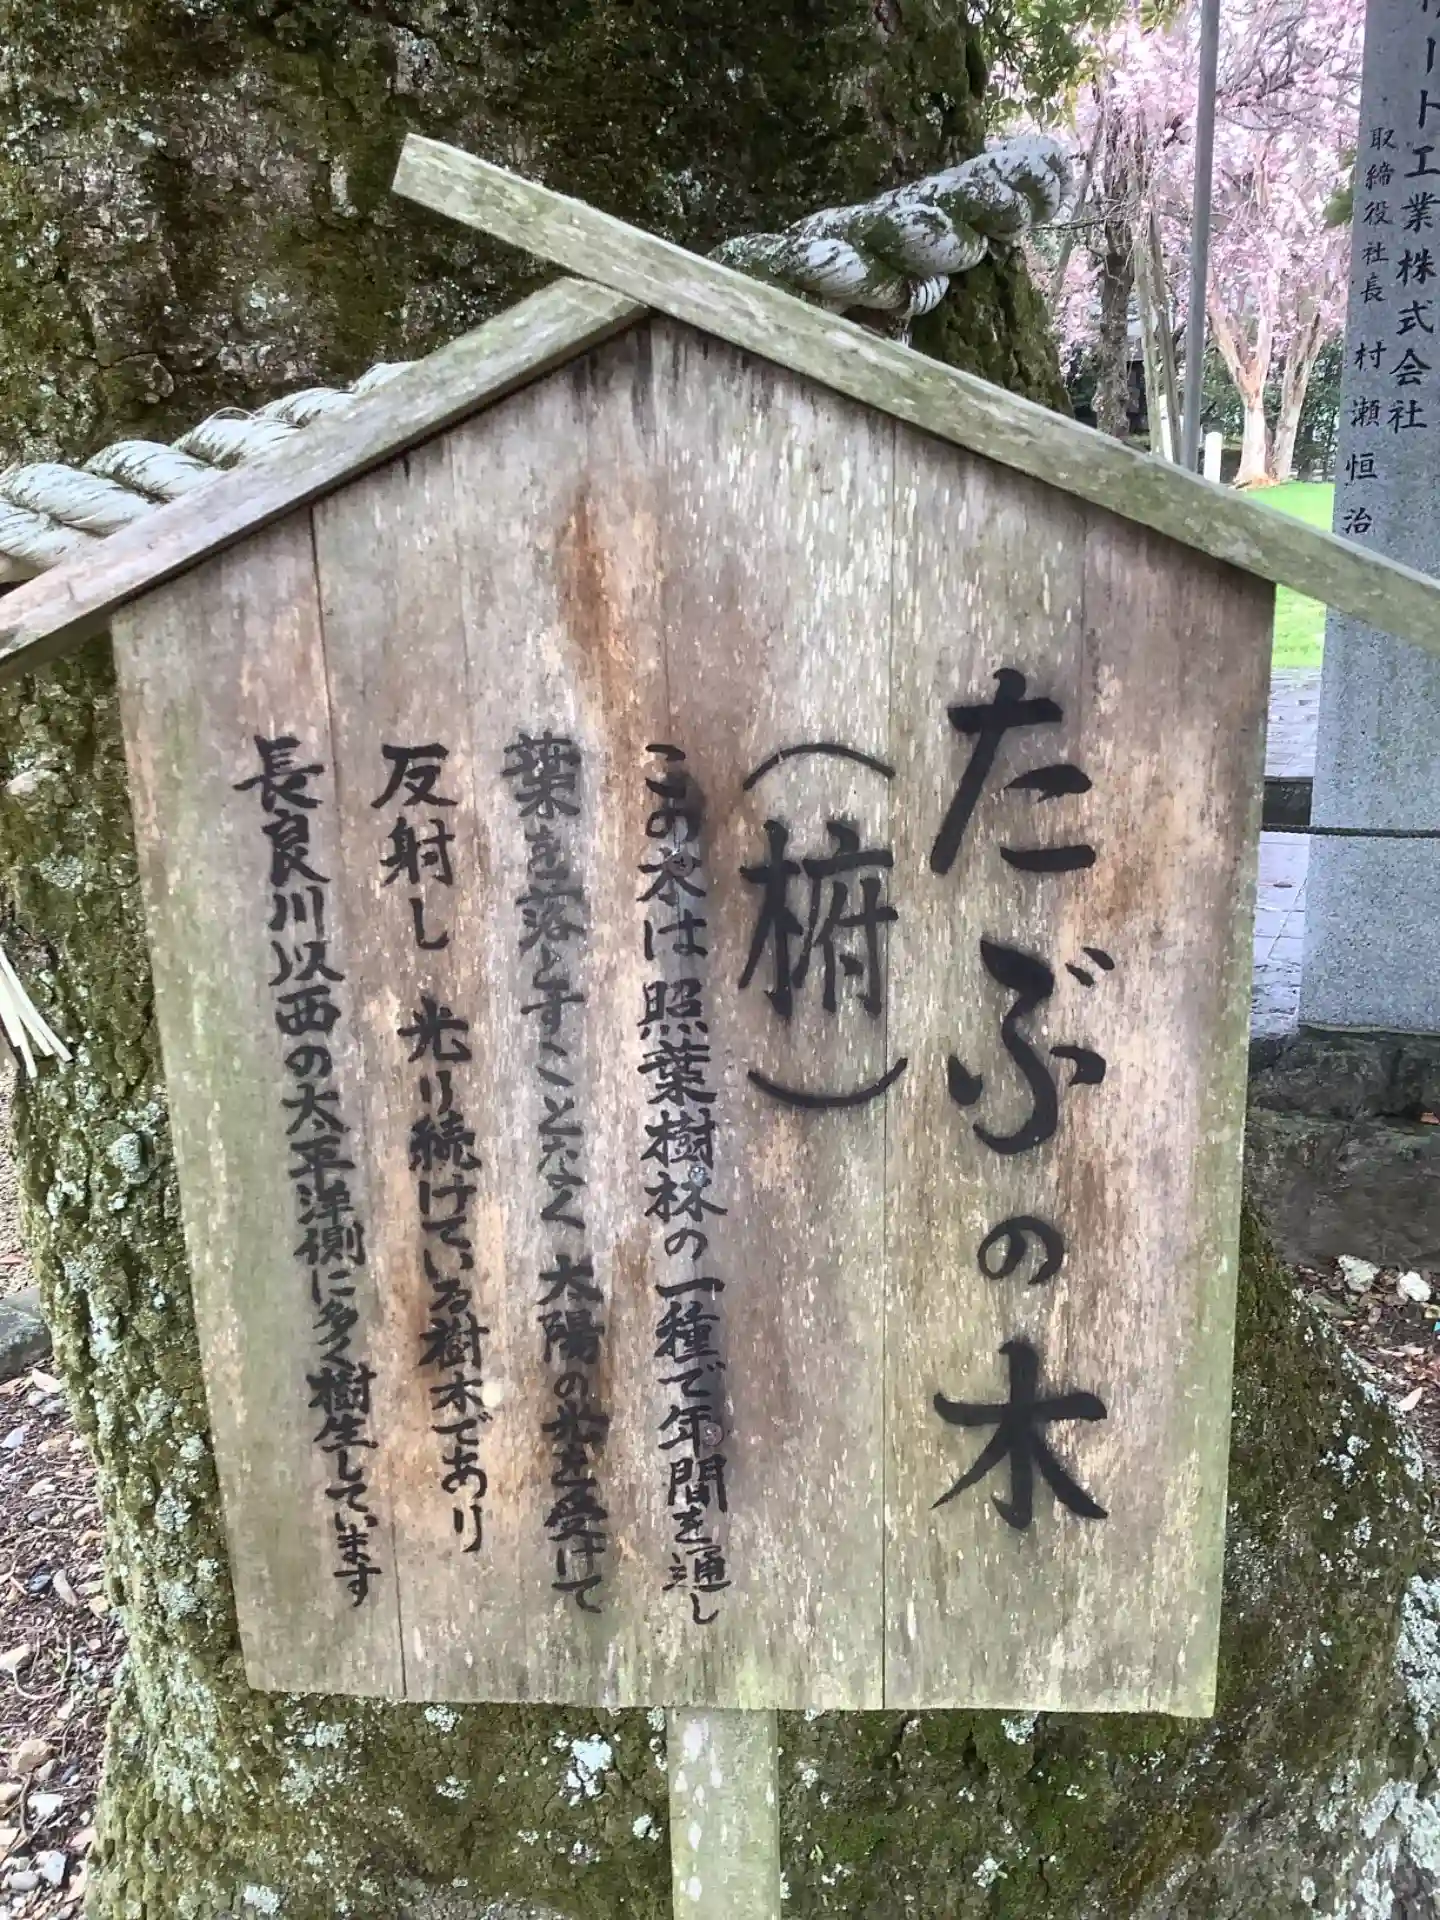 たぶの木
（椨）
この木は照葉樹林の一種で年間を通し
葉を落とすことなく太陽の光を受けて
反射し 光り続けている樹木であり
長良川以西の太平洋側に多く樹生しています
ート工業株式会社
取締役社長 村瀬恒治